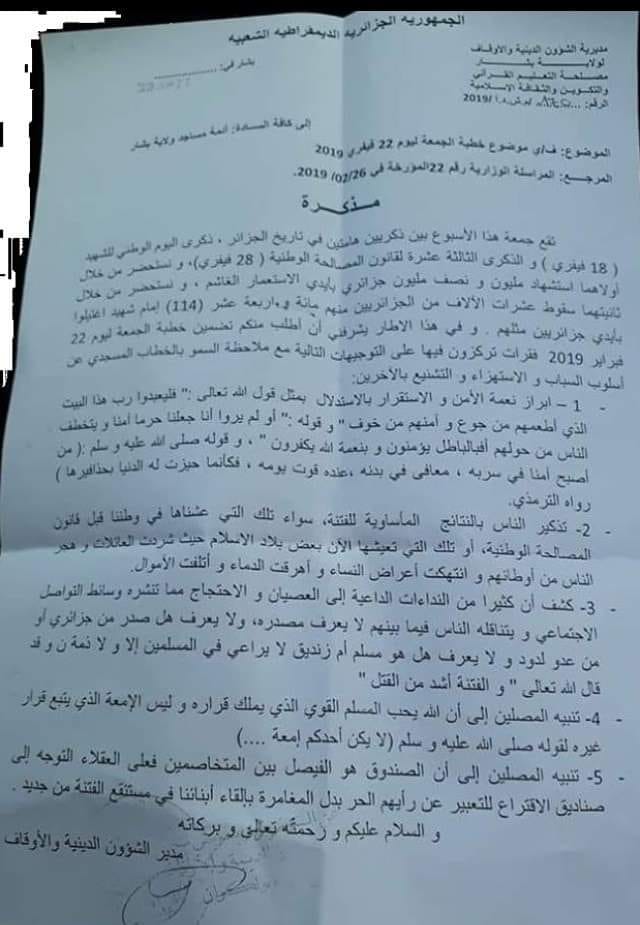 الجمهورية الجزائرية الديمقراطية الشعبية
مديرية الشؤون الدينية والأوقاف
لولاية بشار
مصلحة التعليم القرآني
والتكوين والثقافة الاسلامية
الرقم: /م.ش.د.ا /2019
بشار في: ..................
إلى كافة السادة: أئمة مساجد ولاية بشار
الموضوع: ف/ي موضوع خطبة الجمعة ليوم 22 فيفري 2019
المرجع: المراسلة الوزارية رقم 22المؤرخة في 02/26/ 2019.
مذكرة
تقع جمعة هذا الأسبوع بين ذكريين هامتين في تاريخ الجزائر ، ذكرى اليوم الوطني للشهيد
( 18 فيفري ) و الذكرى الثالثة عشرة لقانون المصالحة الوطنية ( 28 فيفري)، و نستحضر من خلال
أولاهما استشهاد مليون و نصف مليون جزائري بأيدي الاستعمار الغاشم ، و نستحضر من خلال
ثانيتهما سقوط عشرات الآلاف من الجزائريين منهم مائة و اربعة عشر (114) إمام شهيد اغتيلوا
بأيدي جزائريين مثلهم . و في هذا الاطار يشرفني أن أطلب منكم تضمين خطبة الجمعة ليوم 22
فبراير 2019 فقرات تركزون فيها على التوجيهات التالية مع ملاحظة السمو بالخطاب المسجدي عن
أسلوب السباب و الاستهزاء و التشنيع بالآخرين:
- 1 – ابراز نعمة الأمن و الاستقرار بالاستدلال بمثل قول الله تعالى :" فليعبدوا رب هذا البيت
الذي أطعمهم من جوع و أمنهم من خوف " و قوله :" أو لم يروا أنا جعلنا حرما أمنا و يتخطف
الناس من حولهم أفبالباطل يؤمنون و بنعمة الله يكفرون " ، و قوله صلى الله عليه و سلم :( من
أصبح أمنا في سربه ، معافى في بدنه ،عنده قوت يومه ، فكأنما حيزت له الدنيا بحذافيرها )
رواه الترمذي.
- 2- تذكير الناس بالنتائج المأساوية للفتنة، سواء تلك التي عشناها في وطننا قبل قانون
المصالحة الوطنية، أو تلك التي تعيشها الآن بعض بلاد الاسلام حيث شردت العائلات و هجر
الناس من أوطانهم و انتهكت أعراض النساء و أهرقت الدماء و أتلفت الأموال.
- 3- كشف أن كثيرا من النداءات الداعية إلى العصيان و الاحتجاج مما تنشره وسائط التواصل
الاجتماعي و يتناقله الناس فيما بينهم لا يعرف مصدره، ولا يعرف هل صدر من جزائري أو
من عدو لدود و لا يعرف هل هو مسلم أم زنديق لا يراعي في المسلمين إلا و لا ذمة ن و قد
قال الله تعالى " و الفتنة أشد من القتل "
- 4- تنبيه المصلين إلى أن الله يحب المسلم القوي الذي يملك قراره و ليس الإمعة الذي يتبع قرار
غيره لقوله صلى الله عليه و سلم (لا يكن أحدكم إمعة ....)
- 5- تنبيه المصلين إلى أن الصندوق هو الفيصل بين المتخاصمين فعلى العقلاء التوجه إلى
صناديق الاقتراع للتعبير عن رأيهم الحر بدل المغامرة بإلقاء أبنائنا في مستنقع الفتنة من جديد .
و السلام عليكم و رحمته تعالى و بركاته
مدير الشؤون الدينية والأوقاف